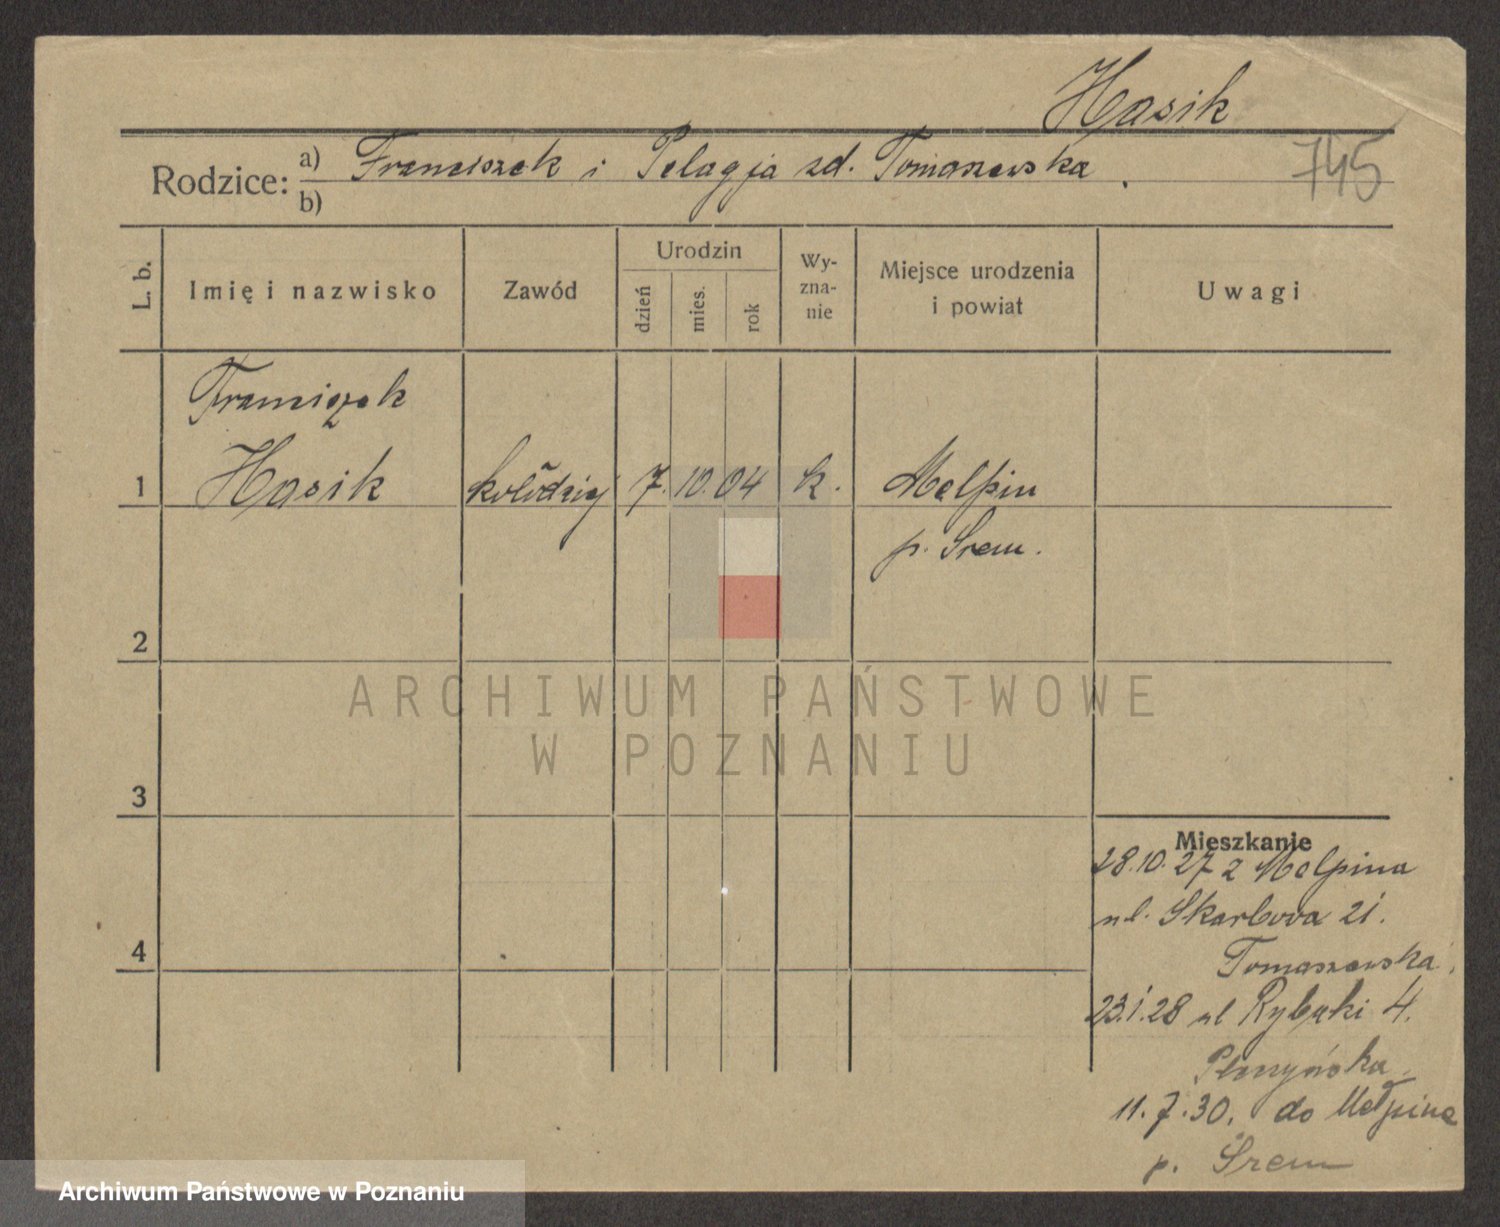 Hasik
745
Rodzice: a) Franciszek i Pelagja zd. Tomaszewska.
b)
L. b.
Imię i nazwisko
Zawód
Urodzin
dzień
mies.
rok
Wy-
zna-
nie
Miejsce urodzenia
i powiat
Uwagi
Franciszek
1 Hasik kołodziej 7. 10. 04 k. Mełpin
p. Śrem.
2
ARCHIWUM PAŃSTWOWE
W POZNANIU
3
Mieszkanie
28.10.27 z Mełpina
ul. Skarbowa 21.
4
Tomaszewska
23.1.28 ul Rybaki 4.
11.7.30. do Mełpina
p. Śrem
Archiwum Państwowe w Poznaniu